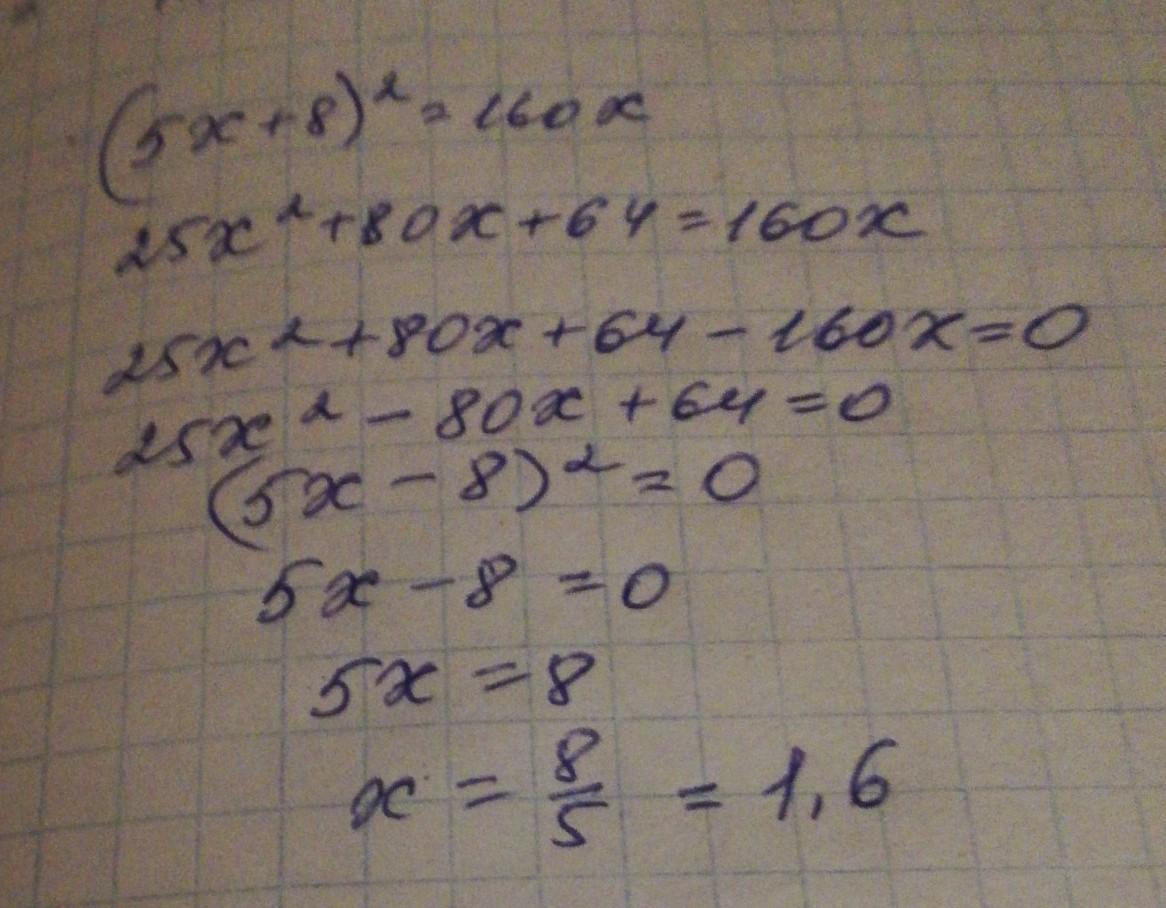 (5x+8)² = 160x
25x² + 80x + 64 = 160x
25x² + 80x + 64 - 160x = 0
25x² - 80x + 64 = 0
(5x - 8)² = 0
5x - 8 = 0
5x = 8
x = 8/5 = 1,6